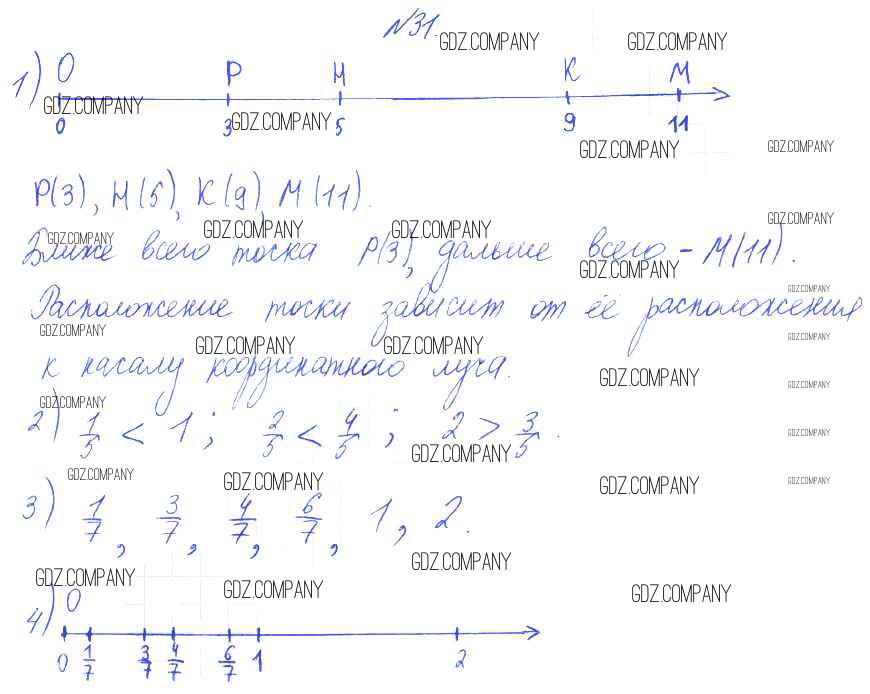 №31.
1) O P H K M
0 3 5 9 11
P(3), H(5), K(9) M(11).
Ближе всего точка P(3), дальше всего – M(11).
Расположение точки зависит от её расположения
к началу координатного луча.
2) 1/5 < 1; 2/5 < 4/5; 2 > 3/5.
3) 1/7, 3/7, 4/7, 6/7, 1, 2.
4) O
0 1/7 3/7 4/7 6/7 1 2
GDZ.COMPANY GDZ.COMPANY
GDZ.COMPANY
GDZ.COMPANY
GDZ.COMPANY GDZ.COMPANY
GDZ.COMPANY
GDZ.COMPANY GDZ.COMPANY
GDZ.COMPANY
GDZ.COMPANY
GDZ.COMPANY
GDZ.COMPANY GDZ.COMPANY
GDZ.COMPANY GDZ.COMPANY
GDZ.COMPANY GDZ.COMPANY
GDZ.COMPANY
GDZ.COMPANY
GDZ.COMPANY
GDZ.COMPANY
GDZ.COMPANY GDZ.COMPANY
GDZ.COMPANY GDZ.COMPANY
GDZ.COMPANY
GDZ.COMPANY
GDZ.COMPANY GDZ.COMPANY